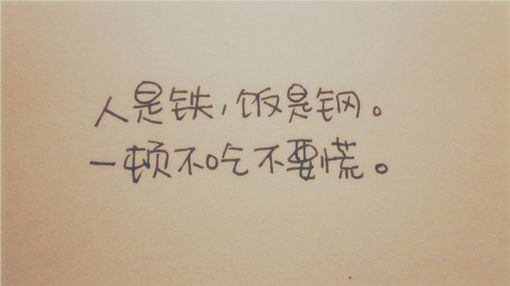 人是铁，饭是钢。
一顿不吃不要慌。